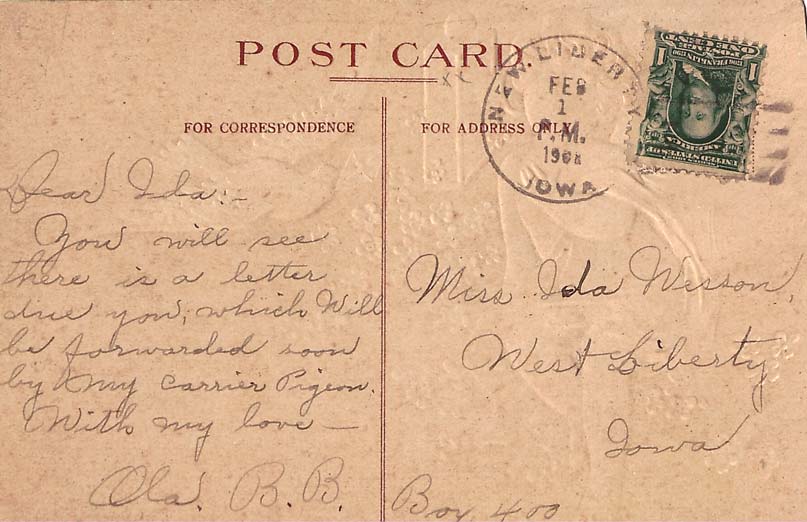 POST CARD.
FOR CORRESPONDENCE
FOR ADDRESS ONLY
NEW LIBERTY
FEB
1
P.M.
1908
IOWA
Dear Ida:-
You will see
there is a letter
due you, which Will
be forwarded soon
by my Carrier Pigeon.
With my love —
Ola. B. B.
Miss Ida Wesson,
West Liberty
Iowa
Box 400
UNITED STATES OF
AMERICA
1706 FRANKLIN 1790
POSTAGE
ONE CENT
1
1